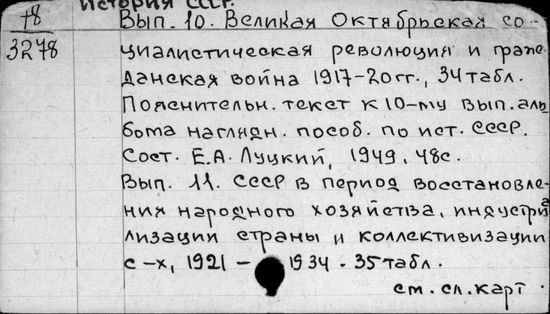 История СССР.
+8
3278
Вып. 10. Великая Октябрьская со-
циалистическая революция и граж-
данская война 1917-20гг., 34 табл.
Пояснительн. текст к 10-му вып. аль-
бома наглядн. пособ. по ист. СССР.
Сост. Е.А. Луцкий, 1949, 48с.
Вып. 11. СССР в период восстановле-
ния народного хозяйства, индустриа-
лизации страны и коллективизации
с-х, 1921 - 1934. 35 табл.
см. сл. карт.